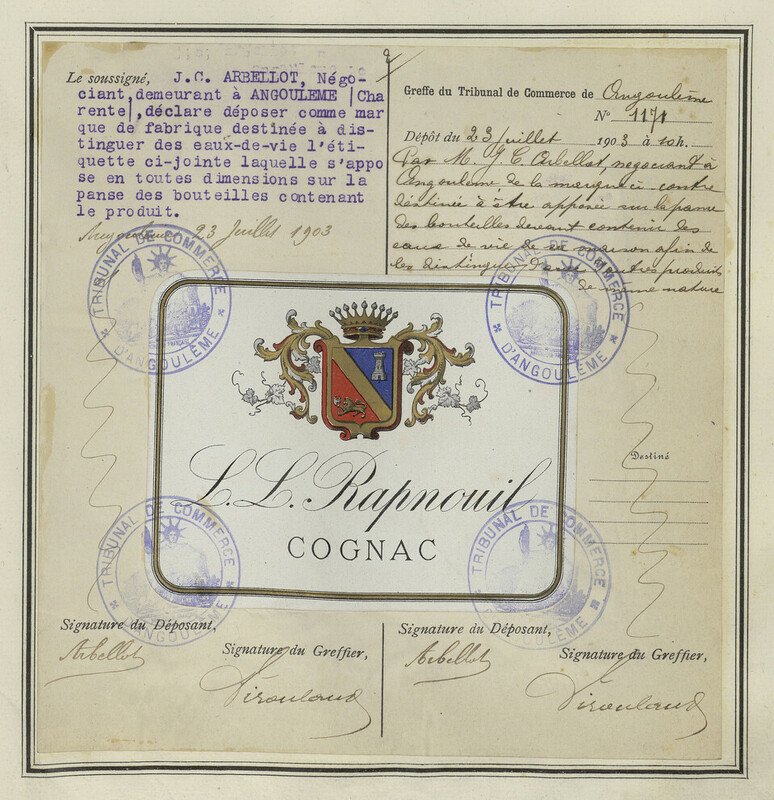 Le soussigné, J.C. ARBELLOT, Négo-
ciant, demeurant à ANGOULEME (Cha
rente), déclare déposer comme mar
que de fabrique destinée à dis-
tinguer des eaux-de-vie l'éti-
quette ci-jointe laquelle s'appo
se en toutes dimensions sur la
panse des bouteilles contenant
le produit.
Angoulême 23 Juillet 1903
Greffe du Tribunal de Commerce de Angoulême
N° 1171
Dépôt du 23 juillet 1903 à 10h.
Par M. J. C. Arbellot, négociant à
Angoulême, de la marque ci-contre
destinée à être apposée sur la panse
des bouteilles devant contenir des
eaux de vie de sa maison afin de
les distinguer d'avec autres produits
de même nature
TRIBUNAL DE COMMERCE D'ANGOULÊME
TRIBUNAL DE COMMERCE D'ANGOULÊME
L. L. Rapnouil
COGNAC
Destiné
TRIBUNAL DE COMMERCE D'ANGOULÊME
TRIBUNAL DE COMMERCE D'ANGOULÊME
Signature du Déposant,
Arbellot
Signature du Greffier,
Signature du Déposant,
Arbellot
Signature du Greffier,